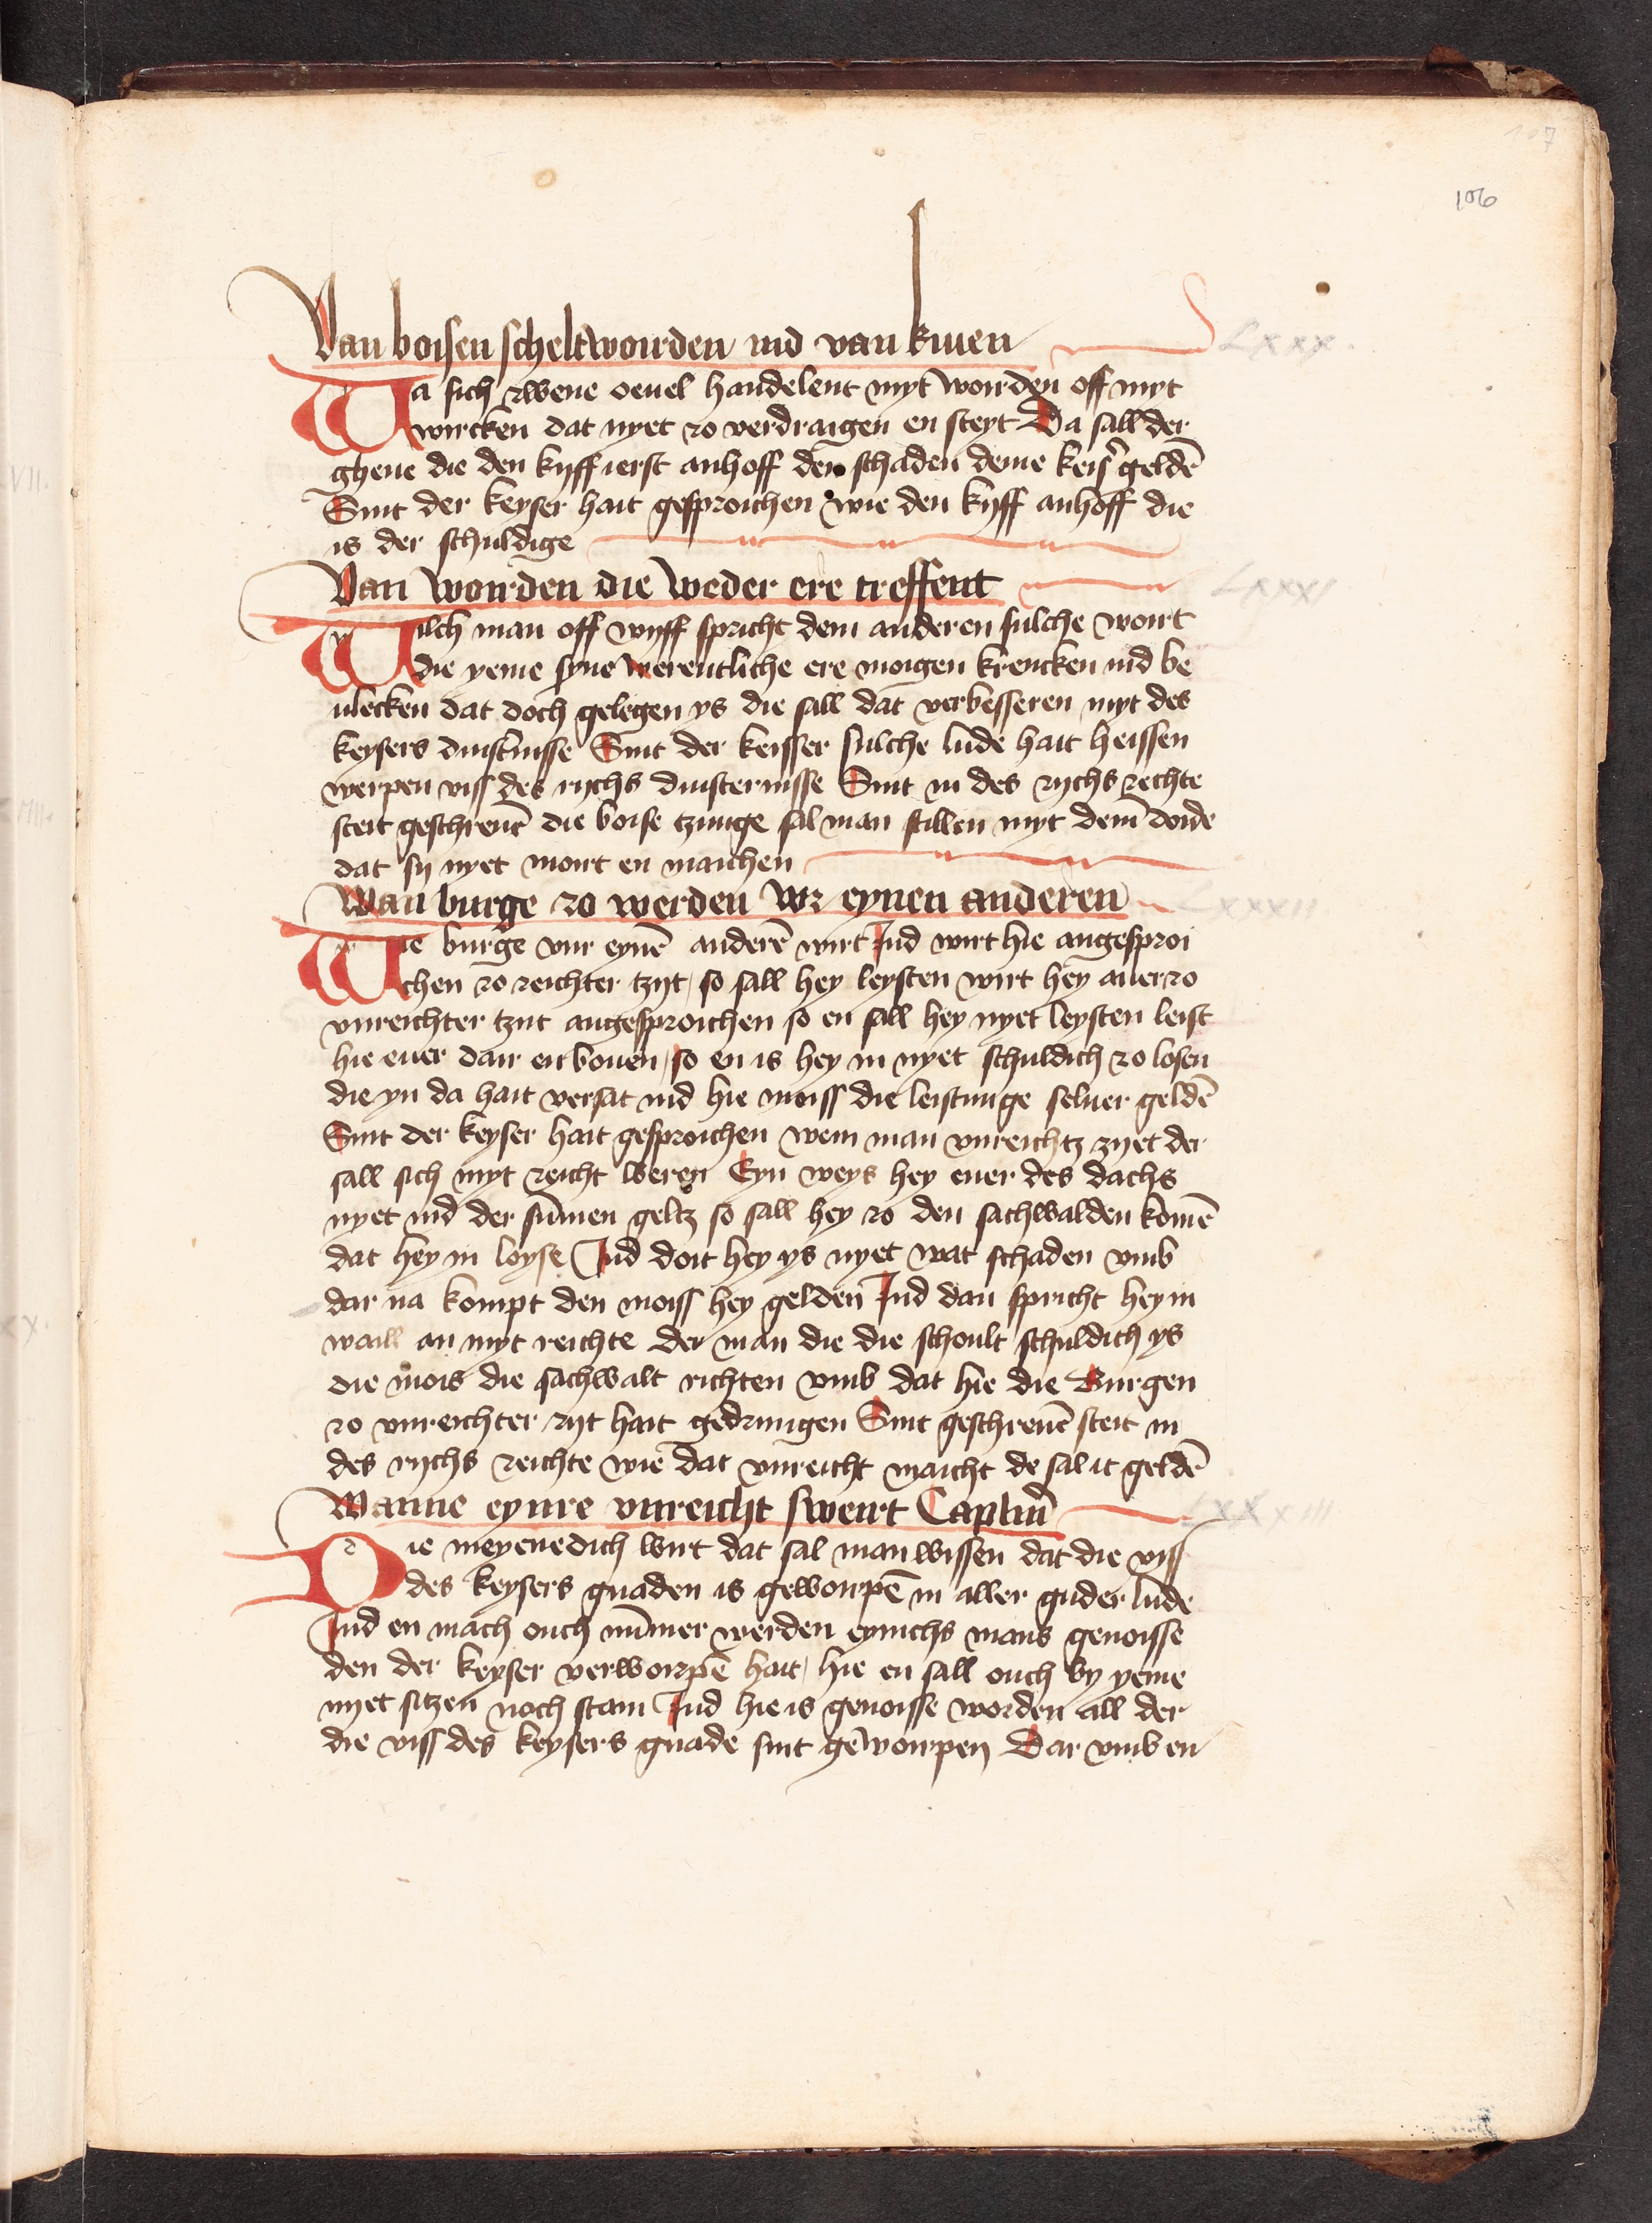 107
106
Van boisen scheltwourden ind van kiuen
LXXX.
Wa sich zwene oeuel handelent myt worden off myt
wircken dat nyet zo verdraigen en steyt Da sall der
ghene die den kyff ierst anhoff den schaden deme keiser geldē
Sint der keyser hait gesproichen wie den kyff anhoff die
is der schuldige
Van wourden die weder ere treffent
LXXXI
Wilch man off wyff spricht dem anderen sulche wort
die yeme syne werentliche ere moigen krencken ind be
ulecken dat doch gelegen ys die sall dat verbesseren myt des
keysers duisternisse Sint der keisser sulche lude hait heissen
werpen viss des rychs duisternisse Sint in des rychs rechte
steit geschreuē die boise tzunge sal man stillen myt dem doide
dat sy nyet mort en maichen
Wan burge zo werden vur eynen anderen
LXXXII
Wie burge vur eynē anderē wirt Ind wirt hie angesproi
chen zo reichter tzyt so sall hey leysten wirt hey auer zo
vnreichter tzyt angesproichen so en sall hey nyet leysten leist
hie euer dair en bouen so en is hey in nyet schuldich zo losen
die yn da hait versat ind hie moiss die leistunge seluer geldē
Sint der keyser hait gesproichen wem man vnreichtz zyet der
sall sich myt reicht weren Eyn weys hey euer des dachs
nyet ind der sūmen geltz so sall hey zo den sachwalden komē
dat hey in loyse Ind doit hey ys nyet wat schaden vmb
dar na kompt den moiss hey gelden Ind dan spricht hey in
waill an myt reichte der man die die schoult schuldich ys
die mois die sachwalt richten vmb dat hie die Burgen
zo vnreichter zyt hait gedrungen Sint geschreuē steit in
des rychs reichte wie dat vnreicht maicht de sal it geldē
Wanne eynre vnreicht sweirt Capitm̄
LXXXIII
Die meyenedich wirt dat sal man wissen dat die viss
des keysers gnaden is gewoirpē in aller guder lude
Ind en mach ouch nūmer werden eynichs mans genoisse
den der keyser verworpē hait hie en sall ouch by yeme
nyet sitzen noch stain Ind hie is genoisse worden all der
die viss des keysers gnade sint gewourpen Dar vmb en